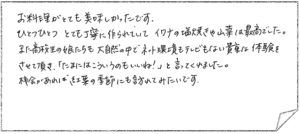 お料理がとても美味しかったです。
ひとつひとつとても丁寧に作られていてイワナの塩焼きや山菜は最高でした。
また高校生の娘たちも大自然の中でネット環境もテレビもない貴重な体験を
させて頂き、「たまにはこういうのもいいね!」と言ってくれました。
機会があれば紅葉の季節にも訪れてみたいです。